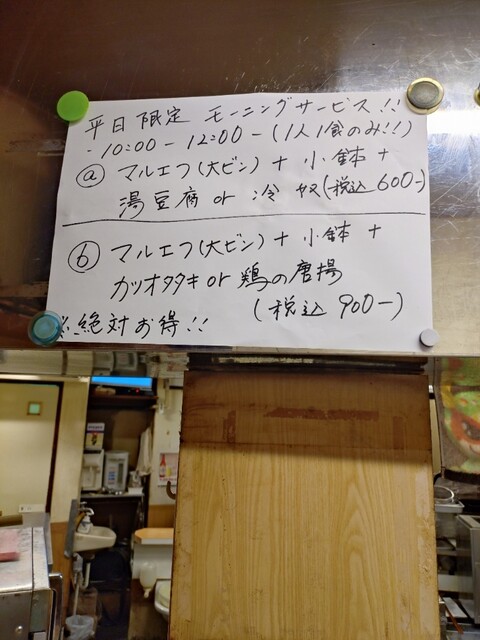 平日限定 モーニングサービス!!
・10:00-12:00-(1人1食のみ!!)
ⓐ マルエフ(大ビン)+小鉢+
湯豆腐 or 冷奴(税込600-)
ⓑ マルエフ(大ビン)+小鉢+
カツオタタキ or 鶏の唐揚
(税込900-)
※絶対お得!!